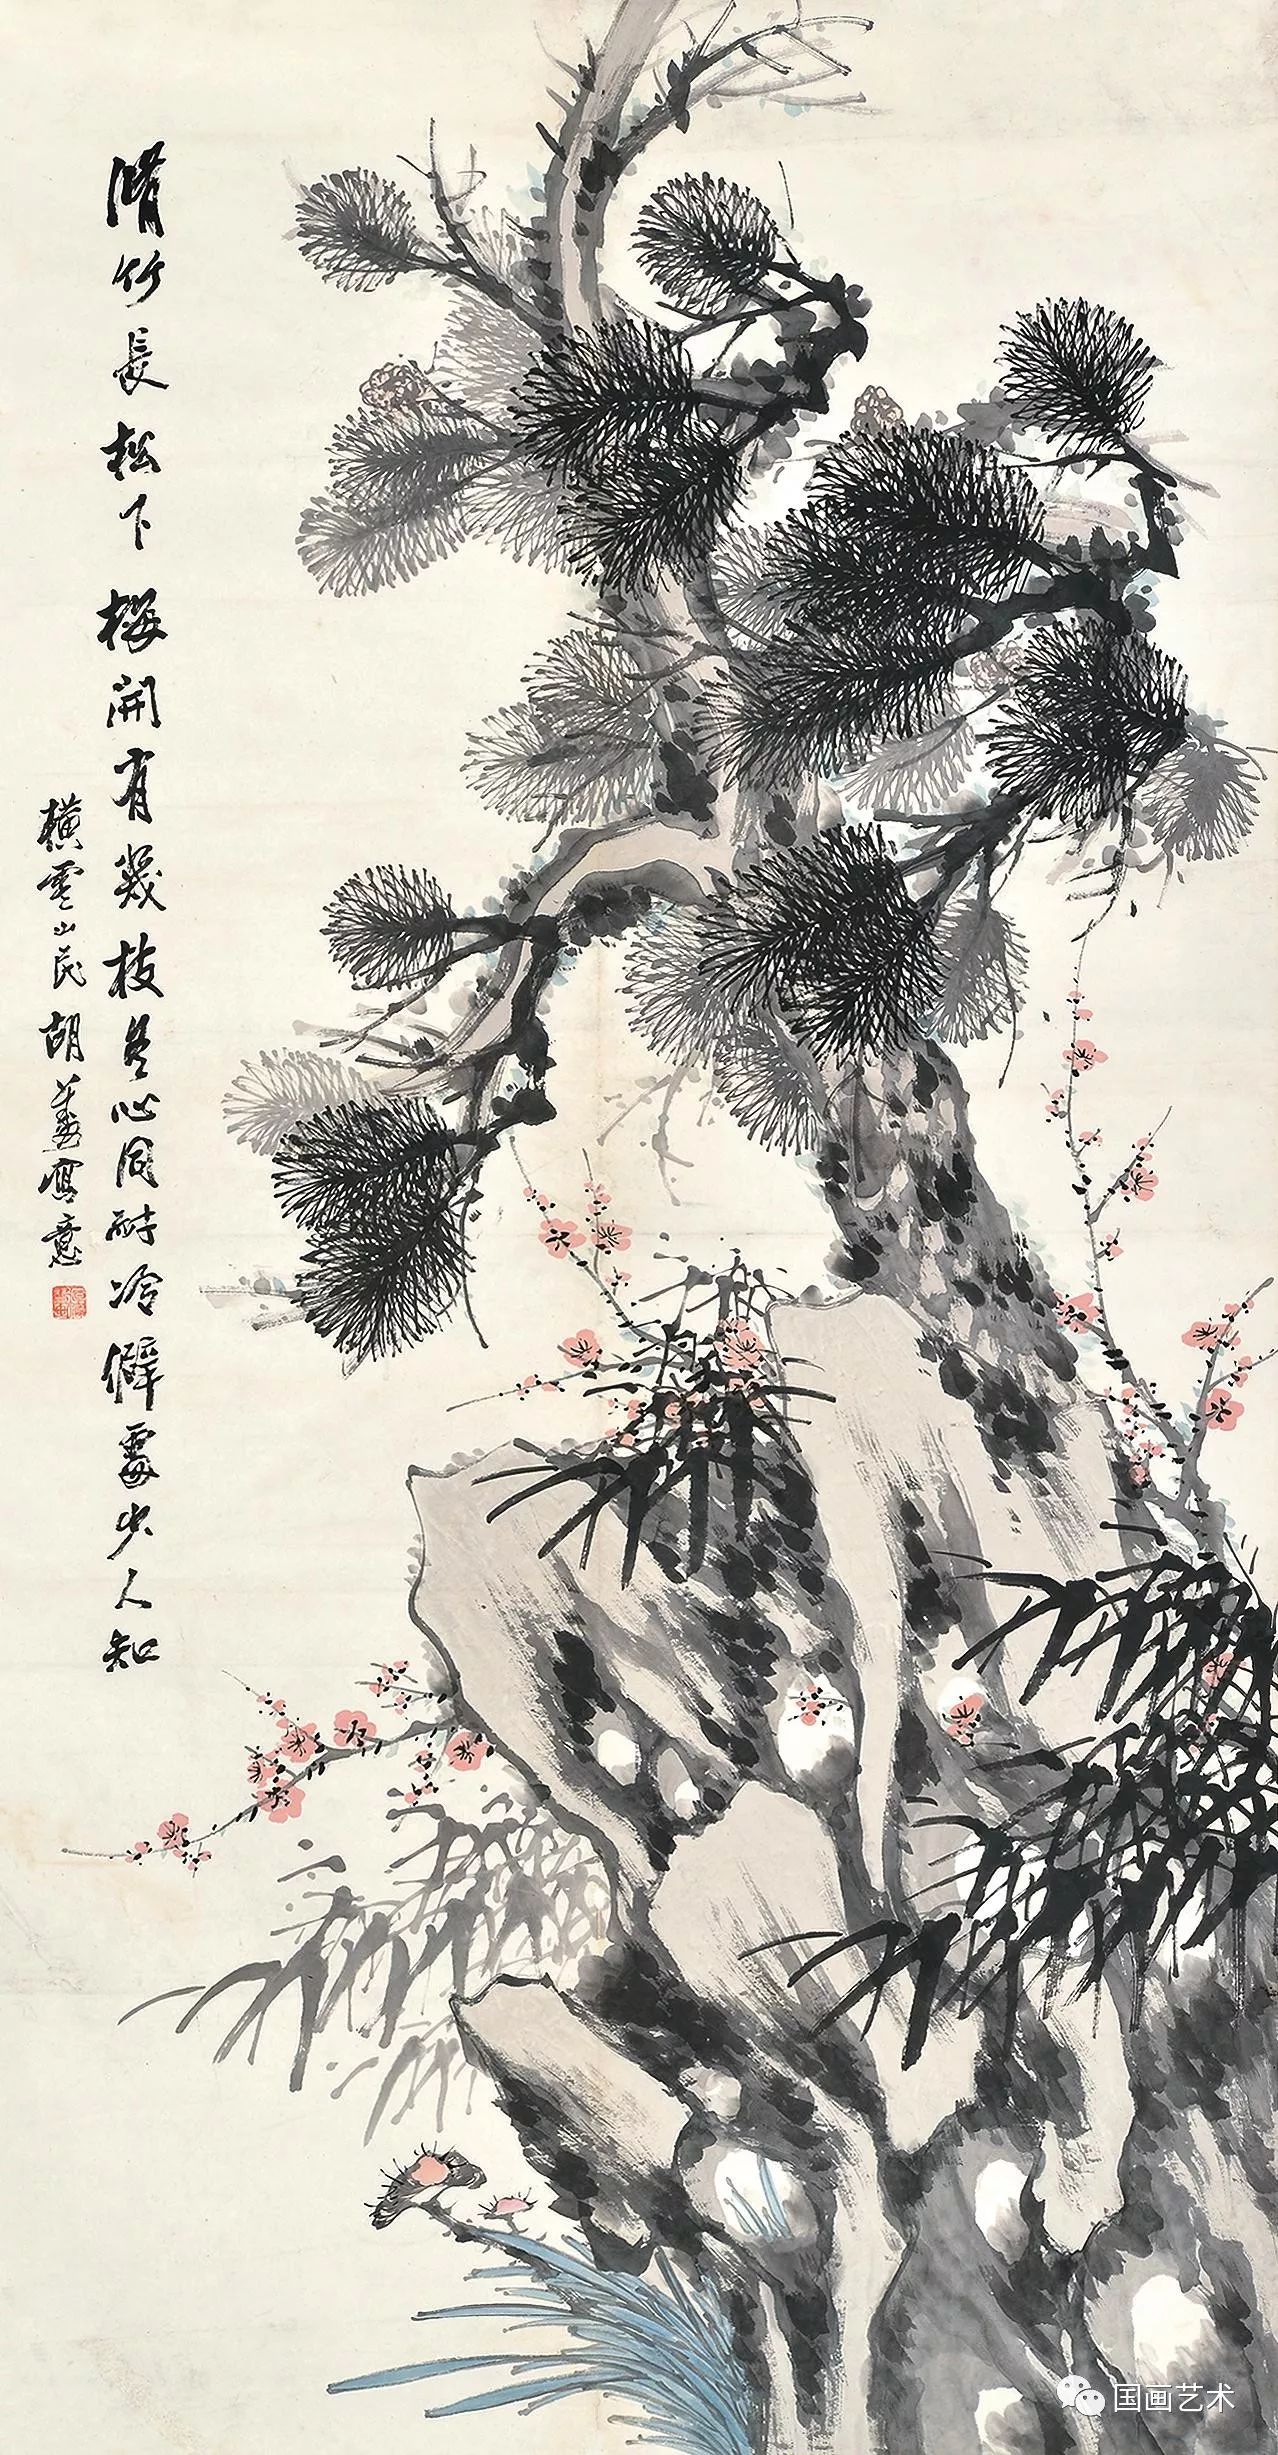 脩竹長松下梅開有幾枝心同耐冷僻處少人知
橫雲山民胡公壽寫意
国画艺术